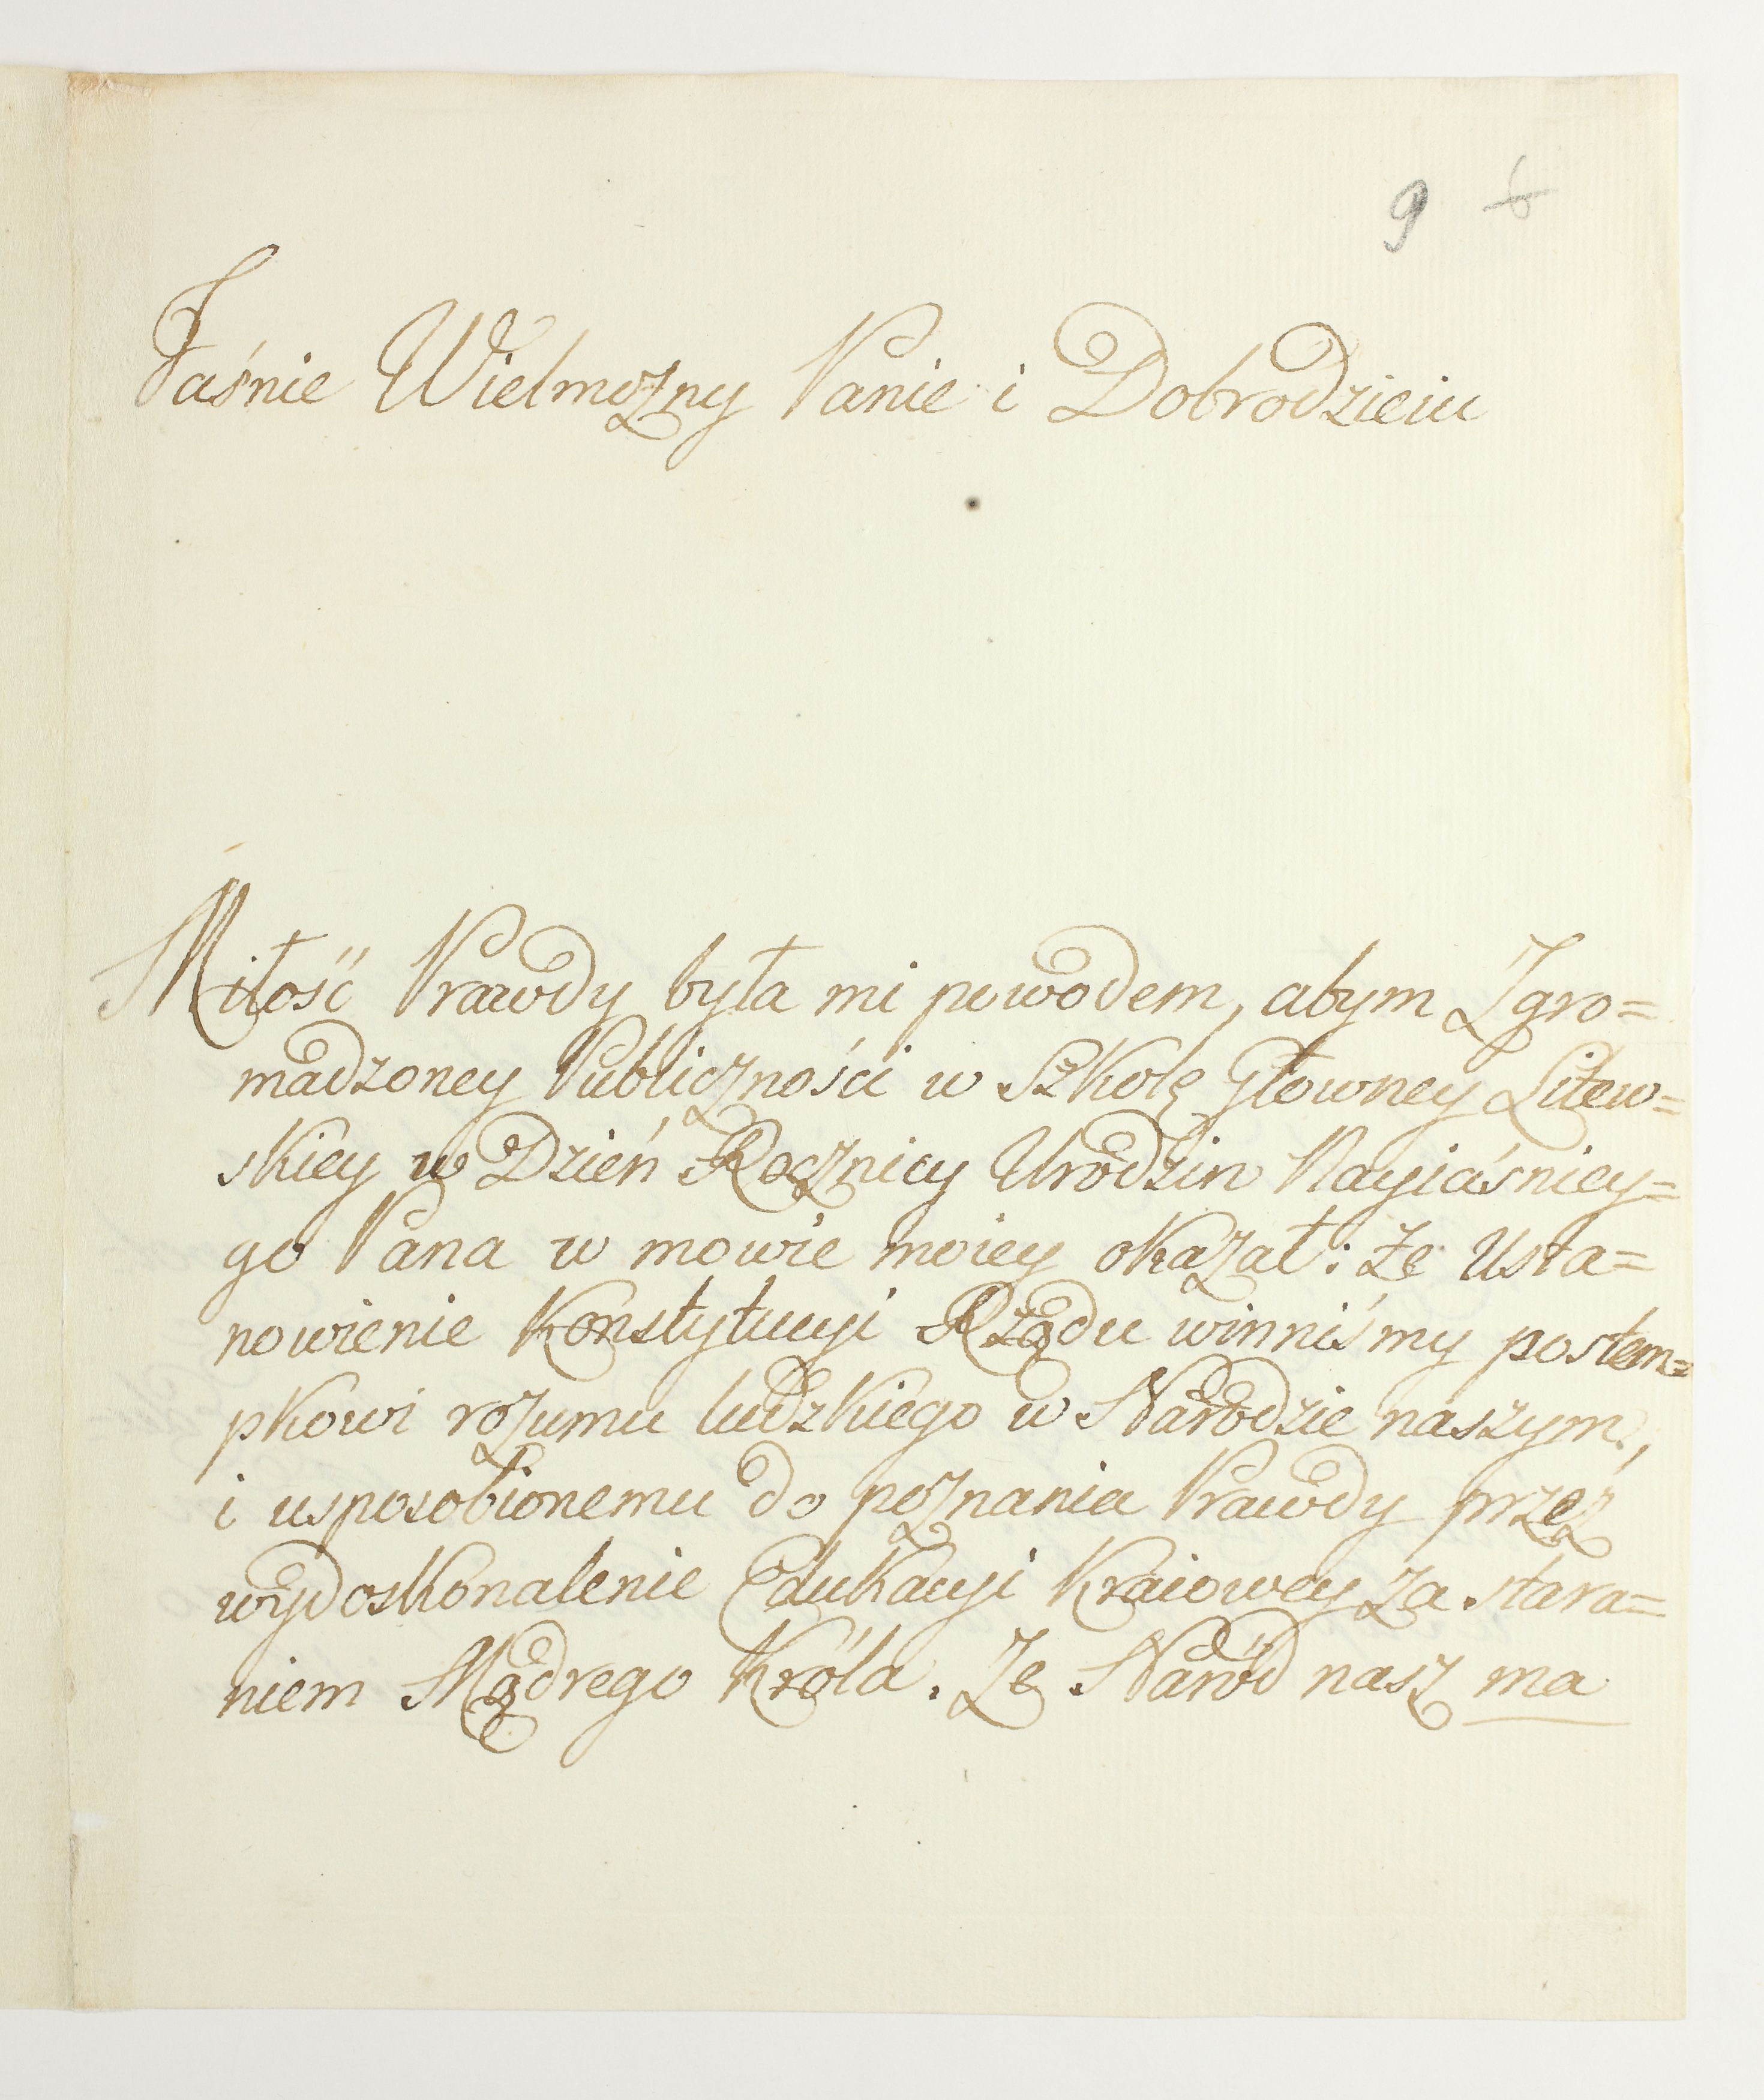 9 6
Jaśnie Wielmozny Panie i Dobrodzieiu
Miłość Prawdy była mi powodem, abym Zgro=
madzoney Publiczności w Szkole Głowney Litew=
skiey w Dzień Rocznicy Urodzin Nayiaśniey=
go Pana w mowie moiey okazał: że Usta=
nowienie Konstytucyi Rządu winniśmy postem=
pkowi rozumu ludzkiego w Narodzie naszym,
i usposobionemu do poznania Prawdy przez
wydoskonalenie Edukacyi Kraiowey za stara=
niem Mądrego Króla. Ze Naród nasz ma